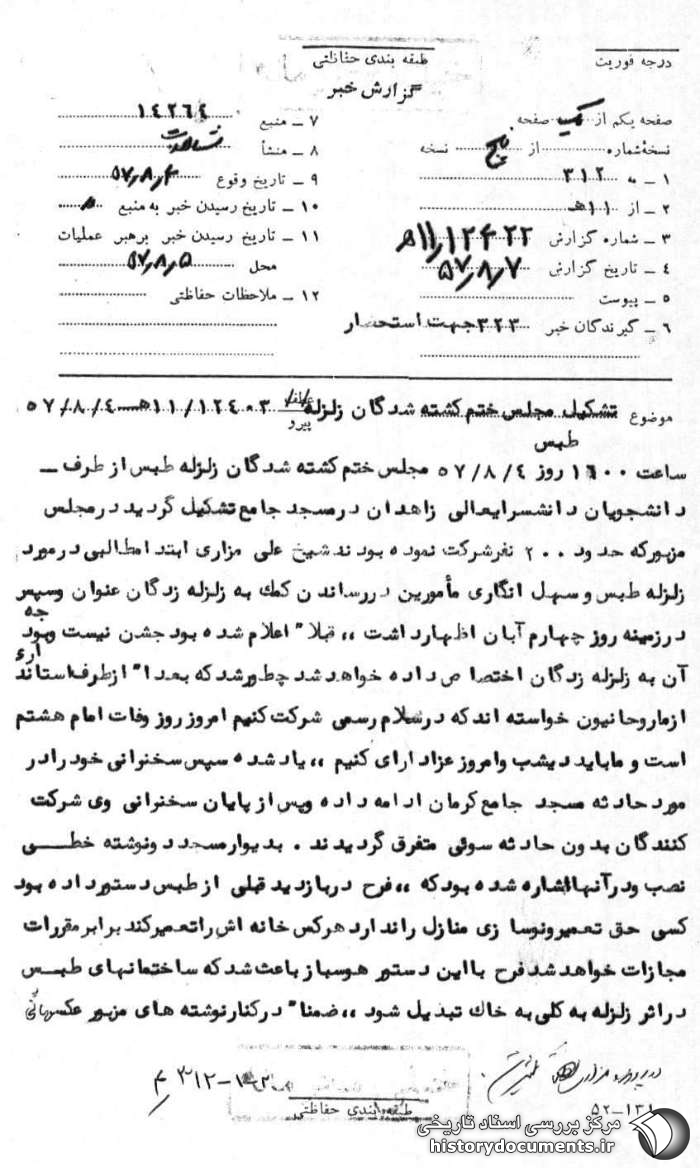 درجه فوریت
طبقه بندی حفاظتی
گزارش خبر
صفحه یکم از یک صفحه
نسخه شماره از پنج نسخه
۱ ـ به ۳۱۲
۲ ـ از ۱۱ هـ
۳ ـ شماره گزارش ۱۲۴۲۲/۱۱هـ
۴ ـ تاریخ گزارش ۵۷/۸/۷
۵ ـ پیوست
۶ ـ گیرندگان خبر ۳۲۳ جهت استحضار
۷ ـ منبع ۱۴۲۶۴
۸ ـ منشأ
۹ ـ تاریخ وقوع ۵۷/۸/۴
۱۰ ـ تاریخ رسیدن خبر به منبع
۱۱ ـ تاریخ رسیدن خبر برهبر عملیات
محل ۵۷/۸/۵
۱۲ ـ ملاحظات حفاظتی
موضوع تشکیل مجلس ختم کشته شدگان زلزله پیرو ۱۱/۱۲۴۰۳هـ ۵۷/۸/۴
طبس
ساعت ۱۶۰۰ روز ۵۷/۸/۴ مجلس ختم کشته شدگان زلزله طبس از طرف ـ
دانشجویان دانشسرایعالی زاهدان درمسجد جامع تشکیل گردید درمجلس
مزبورکه حدود ۲۰۰ نفرشرکت نموده بودند شیخ علی مزاری ابتدا مطالبی درمورد
زلزله طبس و سهل انگاری مأمورین دررساندن کمك به زلزله زدگان عنوان وسپس
درزمینه روز چهارم آبان اظهارداشت ،، قبلا" اعلام شده بود جشن نیست وبودجه
آن به زلزله زدگان اختصاص داده خواهد شد چطورشد که بعدا" ازطرف استانداری
ازماروحانیون خواسته اند که درسلام رسمی شرکت کنیم امروز روز وفات امام هشتم
است و ماباید دیشب وامروز عزاداراری کنیم ،، یاد شده سپس سخنرانی خود رادر
مورد حادثه مسجد جامع کرمان ادامه داده وپس از پایان سخنرانی وی شرکت
کنندگان بدون حادثه سوئی متفرق گردیدند . بدیوارمسجد دونوشته خطـــی
نصب ودرآنها اشاره شده بود که ،، فرح دربازدید قبلی از طبس دستورداده بود
کسی حق تعمیرونوسازی منازل راندارد هرکس خانه اش راتعمیرکند برابر مقررات
مجازات خواهد شد فرح بااین دستور هوسباز باعث شد که ساختمانهای طبـس
دراثر زلزله به کلی به خاك تبدیل شود ،، ضمنا" درکنار نوشته های مزبور عکسهائی
طبقه بندی حفاظتی
۵۲-۱۳۱
مرکز بررسی اسناد تاریخی
historydocuments.ir